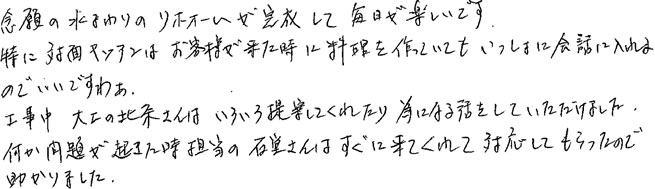 念願の水まわりのリホオームが完成して毎日が楽しいです.
特に対面キッチンはお客様が来た時に料理を作っていてもいっしょに会話に入れる
のでいいですねぇ.
工事中 大工の北条さんはいろいろ提案してくれたり為になる話をしていただけました.
何か問題が起きた時担当の石堂さんはすぐに来てくれて対応してもらったので
助かりました.